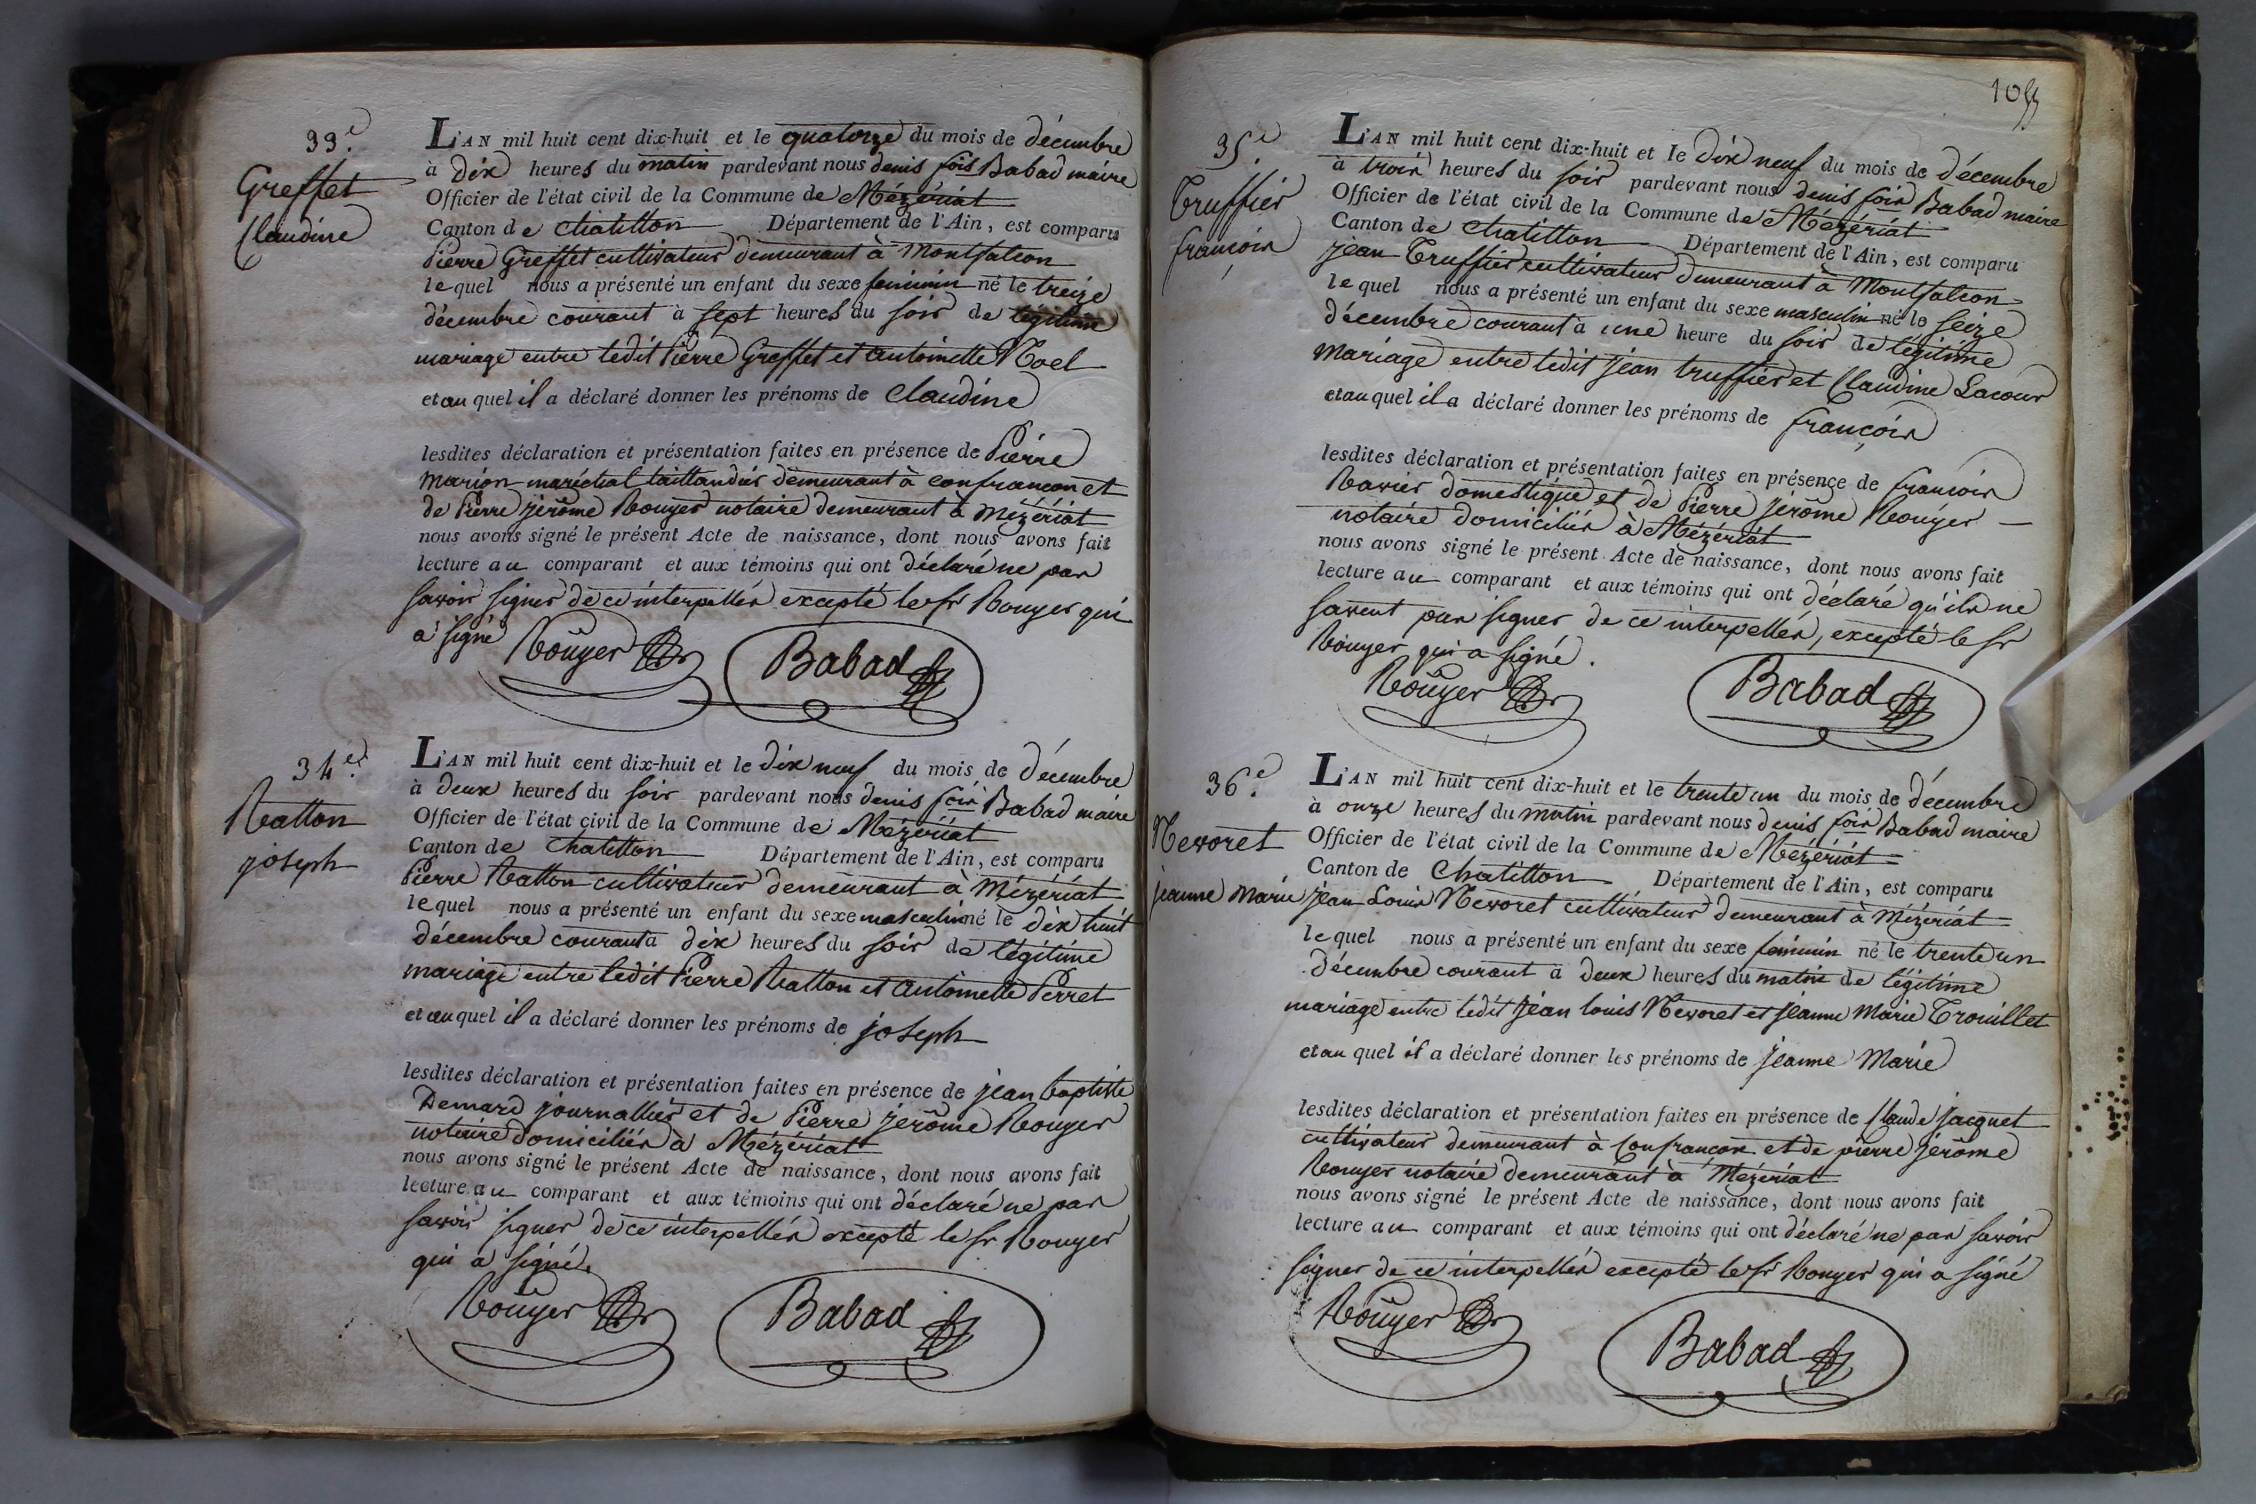 33e.
Greffet
Claudine
L'AN mil huit cent dix-huit et le quatorze du mois de décembre
à dix heures du matin pardevant nous denis fois Babad maire
Officier de l'état civil de la Commune de Mézériat
Canton de chatillon Département de l'Ain, est comparu
Pierre Greffet cultivateur demeurant à Montfalcon
lequel nous a présenté un enfant du sexe feminin né le treize
décembre courant à sept heures du soir de légitime
mariage entre ledit Pierre Greffet et antoinette Noel
et au quel il a déclaré donner les prénoms de Claudine
lesdites déclaration et présentation faites en présence de Pierre
Marion maréchal taillandier demeurant à confrancon et
de Pierre jerôme Rouyer notaire demeurant à Mézériat
nous avons signé le présent Acte de naissance, dont nous avons fait
lecture au comparant et aux témoins qui ont déclaré ne pas
savoir signer de ce interpellés excepté le sr Rouyer qui
a signé
Rouyer Babad
34e.
Ratton
joseph
L'AN mil huit cent dix-huit et le dix neuf du mois de décembre
à deux heures du soir pardevant nous denis fois Babad maire
Officier de l'état civil de la Commune de Mézériat
Canton de chatillon Département de l'Ain, est comparu
Pierre Ratton cultivateur demeurant à Mézériat
lequel nous a présenté un enfant du sexe masculin né le dix huit
décembre courant à dix heures du soir de légitime
mariage entre ledit Pierre Ratton et antoinette Perret
et au quel il a déclaré donner les prénoms de joseph
lesdites déclaration et présentation faites en présence de jean baptiste
Demard journallier et de Pierre jerôme Rouyer
notaire domiciliés à Mézériat
nous avons signé le présent Acte de naissance, dont nous avons fait
lecture au comparant et aux témoins qui ont déclaré ne pas
savoir signer de ce interpellés excepté le sr Rouyer
qui a signé.
Rouyer Babad
35e.
Truffier
françois
L'AN mil huit cent dix-huit et le dix neuf du mois de décembre
à trois heures du soir pardevant nous denis fois Babad maire
Officier de l'état civil de la Commune de Mézériat
Canton de chatillon Département de l'Ain, est comparu
jean Truffier cultivateur demeurant à Montfalcon
lequel nous a présenté un enfant du sexe masculin né le seize
décembre courant à une heure du soir de légitime
mariage entre ledit jean truffier et Claudine Lacour
et au quel il a déclaré donner les prénoms de françois
lesdites déclaration et présentation faites en présence de françois
Ravier domestique et de Pierre jerôme Rouyer
notaire domiciliés à Mézériat
nous avons signé le présent Acte de naissance, dont nous avons fait
lecture au comparant et aux témoins qui ont déclaré qu'ils ne
savent pas signer de ce interpellés, excepté le sr
Rouyer qui a signé.
Rouyer Babad
36e.
Nevoret
jeanne Marie
L'AN mil huit cent dix-huit et le trente un du mois de décembre
à onze heures du matin pardevant nous denis fois Babad maire
Officier de l'état civil de la Commune de Mézériat
Canton de Chatillon Département de l'Ain, est comparu
jean Louis Nevoret cultivateur demeurant à Mézériat
lequel nous a présenté un enfant du sexe feminin né le trente un
décembre courant à deux heures du matin de légitime
mariage entre ledit jean louis Nevoret et jeanne Marie Trouillet
et au quel il a déclaré donner les prénoms de jeanne Marie
lesdites déclaration et présentation faites en présence de Claude jacquet
cultivateur demeurant à Confrancon et de pierre jerôme
Rouyer notaire demeurant à Mézériat
nous avons signé le présent Acte de naissance, dont nous avons fait
lecture au comparant et aux témoins qui ont déclaré ne pas savoir
signer de ce interpellés excepté le sr Rouyer qui a signé
Rouyer Babad